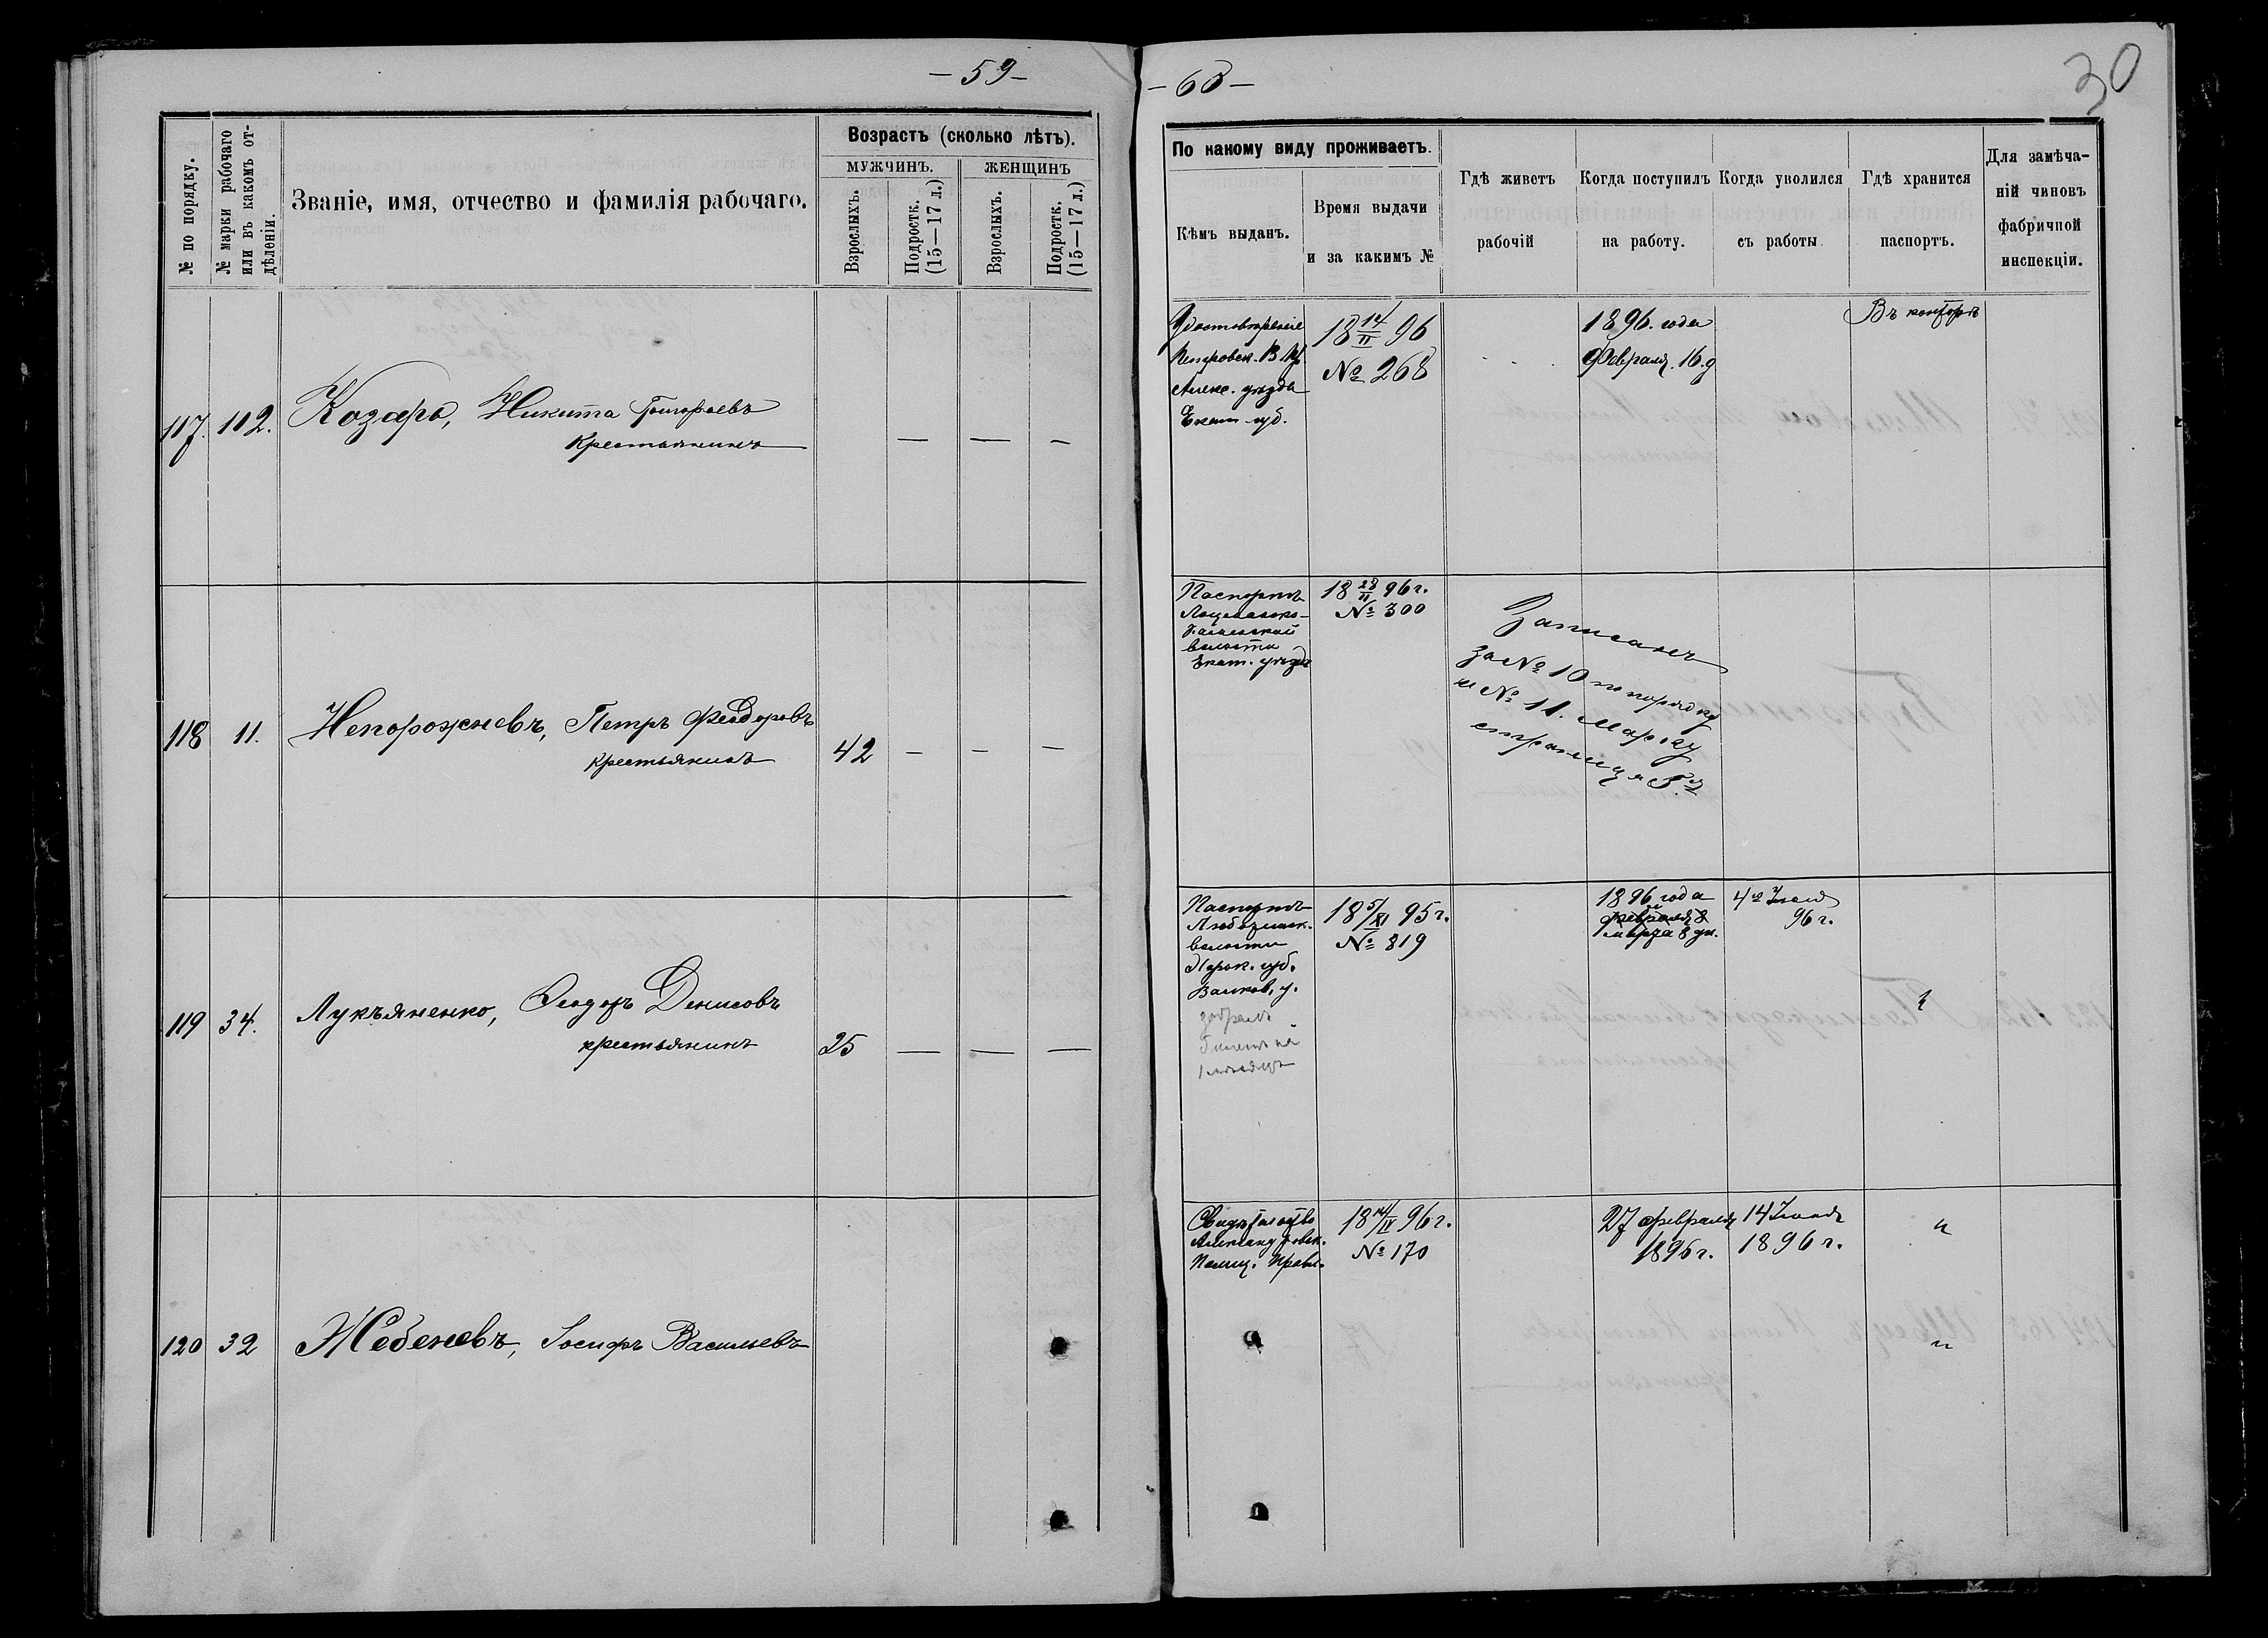 — 59 —
№ по порядку.
№ марки рабочаго или въ какомъ от-
дѣленіи.
Званіе, имя, отчество и фамилія рабочаго.
Возрастъ (сколько лѣтъ).
МУЖЧИНЪ.
ЖЕНЩИНЪ
Взрослыхъ.
Подростк.
(15—17 л.)
Взрослыхъ.
Подростк.
(15—17 л.)
117. 112. Козарь, Никита
Крестьянинъ — — —
118 11. Непорожневъ, Петръ Феодоровъ
крестьянинъ 42 — — —
119 34. Лукъяненко, Ѳеодоръ Денисовъ
крестьянинъ 25 — — —
120 32 Жебеневъ, Іосифъ Васильевъ
— 60 —
30
По какому виду проживаетъ.
Кѣмъ выданъ.
Время выдачи
и за какимъ №
Гдѣ живетъ
рабочій
Когда поступилъ
на работу.
Когда уволился
съ работы
Гдѣ хранится
паспортъ.
Для замѣча-
ній чиновъ
фабричной
инспекціи.
Удостовѣреніе
Петровск. В.
Алекс. уѣзда
Екат. губ.
18 14/II 96
№ 268
1896. года
Февраля. 16. д
Въ конторѣ
Паспортъ
Лоцманско-
Каменской
волости
Екат. уѣзда
18 28/II 96 г.
№ 300
Записанъ
за № 10 по порядку
и № 11. Марку
страница 5.я
Паспортъ
Люботинск.
волости
Харьк. губ.
Валков. у.
забралъ
билетъ на
1 мѣсяцъ
18 5/XI 95 г.
№ 819
1896 года
февраля
марта 8 дн.
4го Іюля
96 г.
"
Свидѣтельство
Александровск.
Полиц. Правл.
18 14/IV 96 г.
№ 170
27 февраля
1896 г.
14
1896 г.
"
"